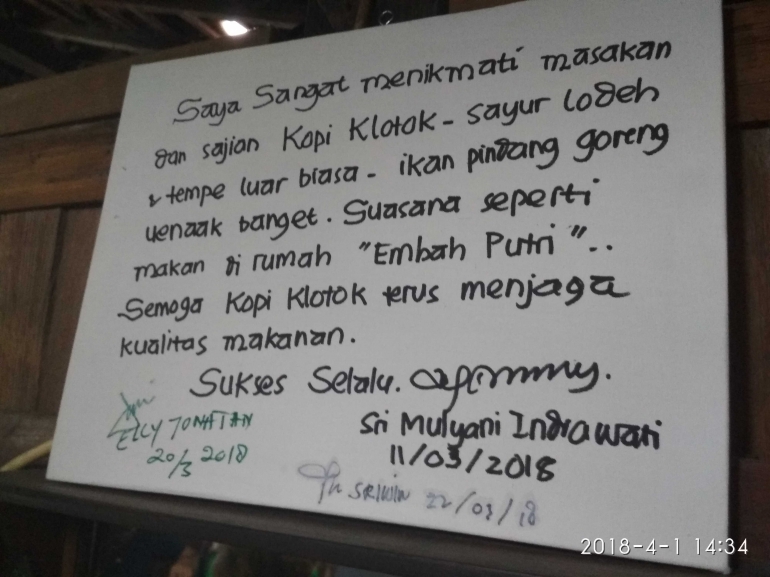 Saya Sangat menikmati masakan
dan sajian Kopi Klotok - sayur lodeh
& tempe luar biasa - ikan pindang goreng
uenaak banget. Suasana seperti
makan di rumah "Embah Putri"..
Semoga Kopi Klotok terus menjaga
kualitas makanan.
Sukses Selalu.
Sri Mulyani Indrawati
11/03/2018
ELLY JONATAN
20/3 2018
22/03/18
2018-4-1 14:34